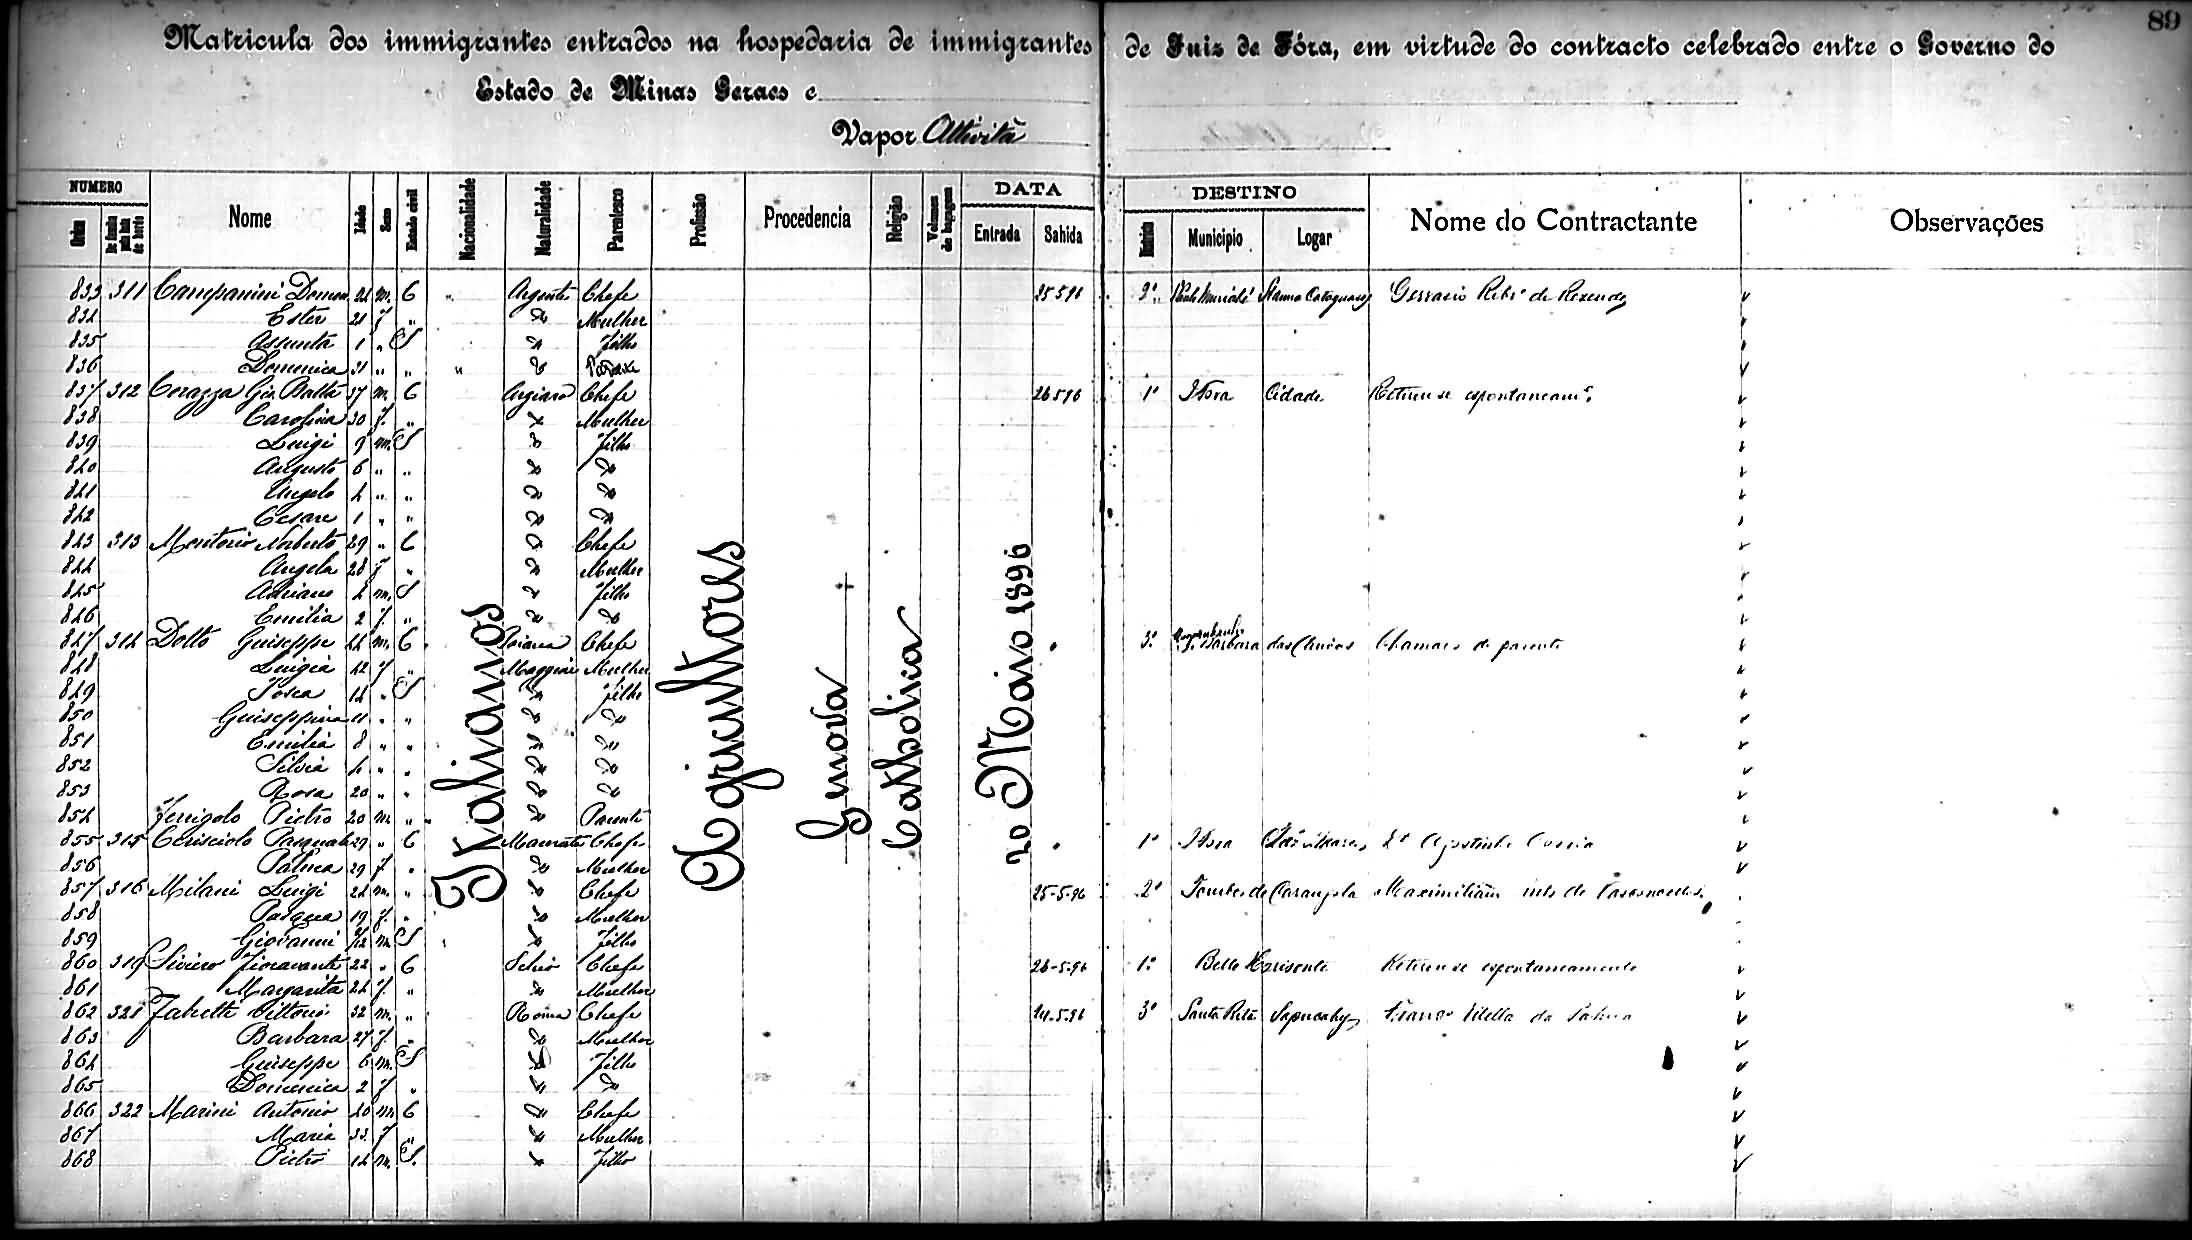 89
Matricula dos immigrantes entrados na hospedaria de immigrantes de Juiz de Fóra, em virtude do contracto celebrado entre o Governo do
Estado de Minas Geraes e
Vapor Attivitá
NUMERO DATA DESTINO
Ordem De familia pela lista de bordo Nome Idade Sexo Estado civil Nacionalidade Naturalidade Parentesco Profissão Procedencia Religião Volumes de bagagem Entrada Sahida Districto Municipio Logar Nome do Contractante Observações
Italianos Agricultores Genova Catholica 20 Maio 1896
833 311 Campanini Domen 24 m. C " Argenta Chefe 25 5 96 2º Gervasio Ribº de Rezende
834 Ester 21 f " Do Mulher
835 Assunta 1 " S Do Filho
836 Domenica 31 " " " Do
837 312 Corazza Gio. Batta 37 m. C Chefe 26 5 96 1º J Fora Cidade Retirou se espontaneamte
838 Carolina 30 f. " Do Mulher
839 Luigi 9 m. S Do Filho
840 Augusto 6 " " Do Do
841 Angelo 4 " " Do Do
842 Cesare 1 " " Do Do
843 313 Moritorio Norberto 29 " C Do Chefe
844 Angela 28 f " Do Mulher
845 Adriano 4 m. S Do Filho
846 Emilia 2 f. " Do Do
847 314 Dotto Guiseppe 44 m. C Chefe 3º S. Barbara das Chamado de parente
848 Luigia 42 f " Mulher
849 Tosca 14 " S Do Filho
850 Guiseppina 11 " " Do Do
851 Emilia 8 " " Do Do
852 Silvia 4 " " Do Do
853 Rosa 20 " " Do Do
854 Ferigolo Pietro 20 m " Do Parente
855 315 Cerisciolo Pasquale 29 " C Chefe 1º J Fora Agostinho Corrêa
856 Palmea 29 f " Do Mulher
857 316 Milani Luigi 24 m. " Do Chefe 25-5-96 2º Tombos de Carangola
858 Pasqua 19 f. " Do Mulher
859 Giovanni m. S Do Filho
860 319 Siviero Fioravante 22 " C Schio Chefe 26-5-96 1º Bello Horisonte Retirou se espontaneamente
861 Margarita 24 f. " Do Mulher
862 321 Fabetti Vittorio 32 m. " Roma Chefe 24-5-96 3º Santa Rita Sapucahy Vilella da Palma
863 Barbara 27 f. " Do Mulher
864 Guiseppe 6 m. S Do Filho
865 Domenica 2 f " Do Do
866 322 Marini Antonio 40 m C Do Chefe
867 Maria 33 f " Do Mulher
868 Pietro 14 m. S. Do Filho